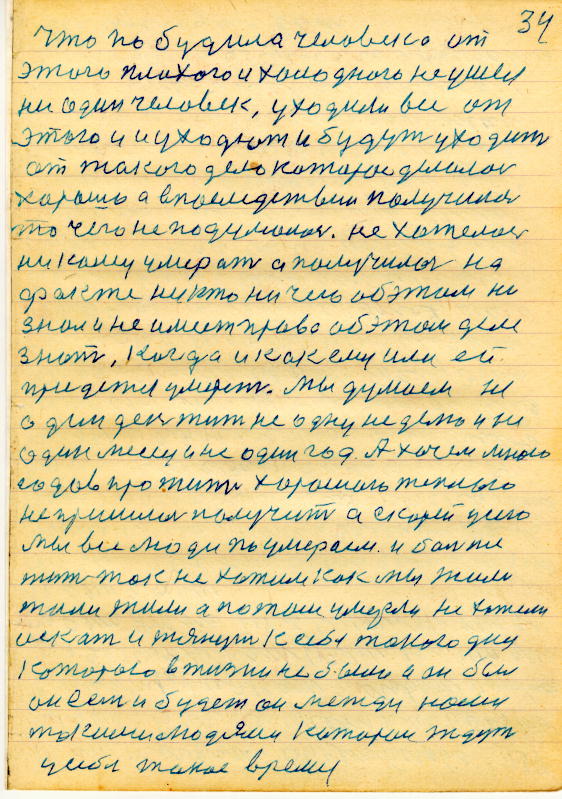 34
Что побудила человека от
этого плохого и холодного не ушел
ни один человек, уходили все от
этого и и уходют и будут уходит
от такого дело которое делалос
хорошо а впоследствии получилос
то чего не подумалос. не хотелос
ни кому умерат а получилос на
факте никто ничего об этом не
знал и не имеет право об этом деле
знат, когда и как ему или ей
придется умерет. Мы думаем не
один ден жит не одну неделю и не
один месец и не один год. А хочем много
годов прожит хорошого теплого
не пришлос получит а скорей усего
мы все люди поумераем. и болше
жит так не хотим как мы жили
жили жили а потом умерли не хотели
искат и тянут к себе такого дня
которого в жизни не было а он был
он ест и будет он между нами
такими людями которои ждут
у себя такое время